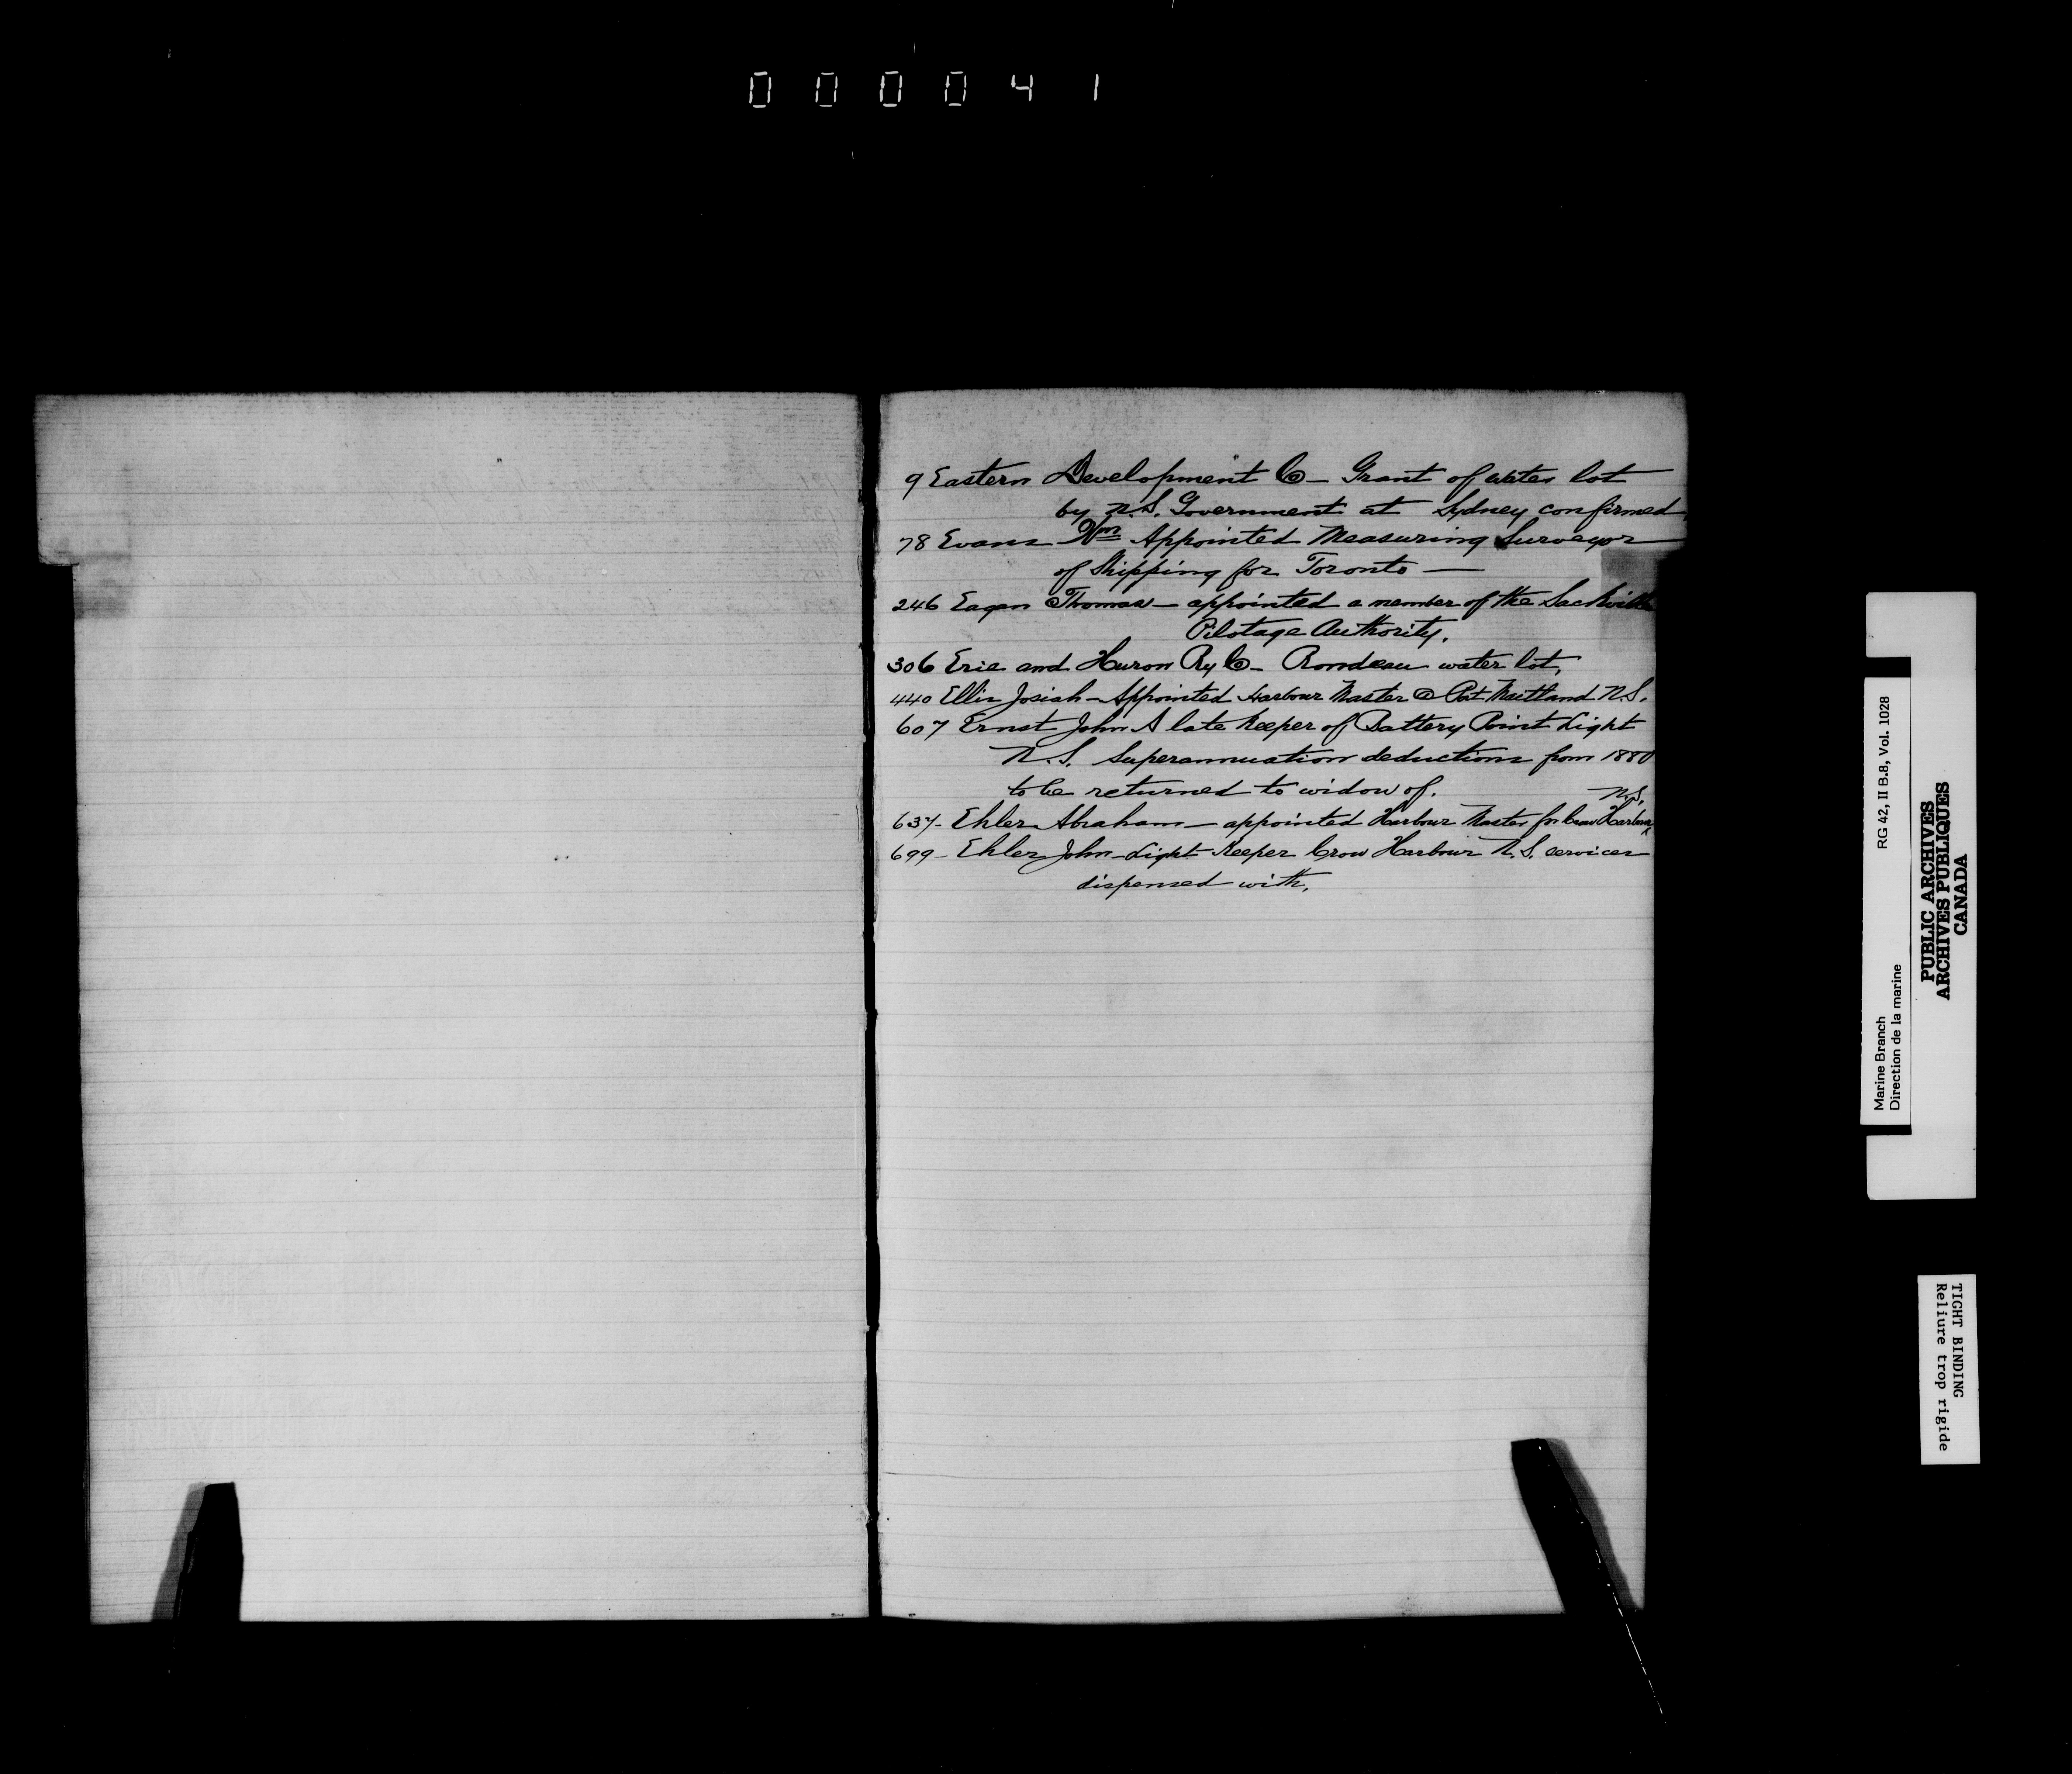 000041
9 Eastern Development Co - Grant of water lot
by N.S. Government at Sydney confirmed
78 Evans Wm Appointed Measuring Surveyor
of Shipping for Toronto —
246 Eagan Thomas - appointed a member of the Sackville
Pilotage Authority.
306 Erie and Huron Ry Co - Rondeau water lot,
440 Ellis Josiah - Appointed Harbour Master @ Port Maitland N.S.
607 Ernst John A late keeper of Battery Point Light
N.S. Superannuation deductions from 1880
to be returned to widow of.
637 - Ehler Abraham - appointed Harbour Master for Crow Harbour N.S.
699 - Ehler John - Light Keeper Crow Harbour N.S. services
dispensed with.
Marine Branch RG 42, II B.8, Vol. 1028
Direction de la marine
PUBLIC ARCHIVES
ARCHIVES PUBLIQUES
CANADA
TIGHT BINDING
Reliure trop rigide